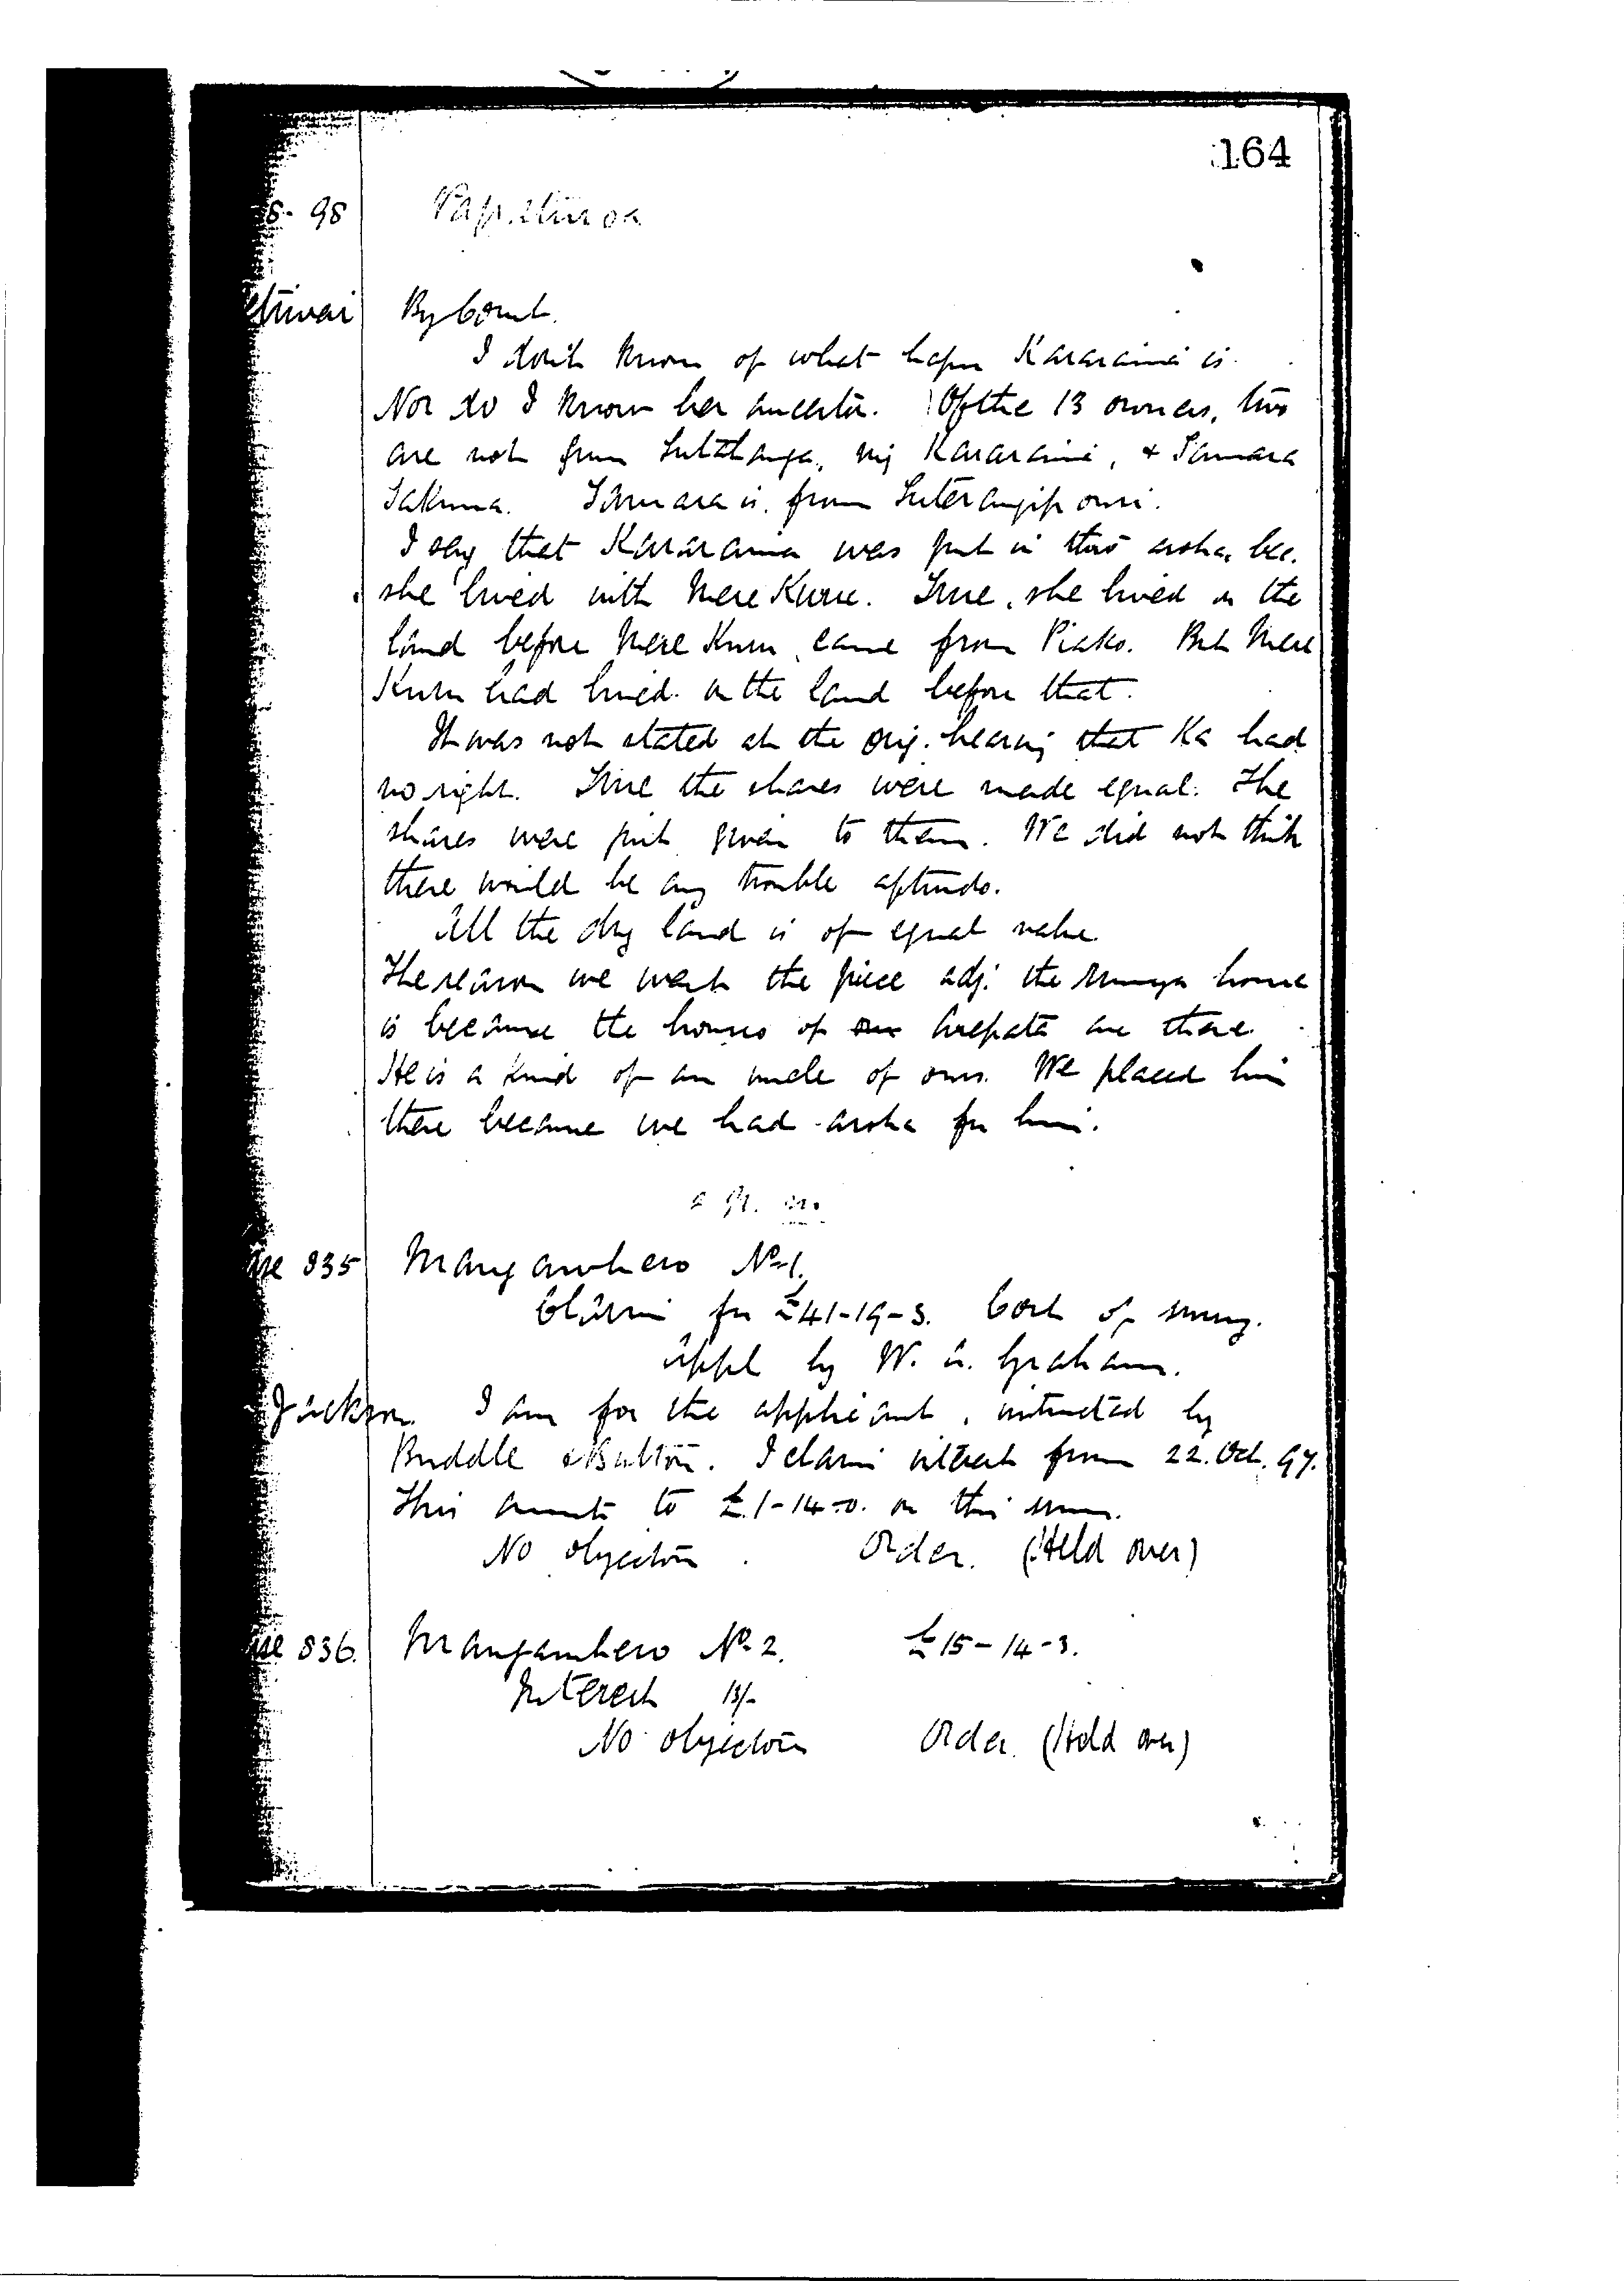 164
8. 98 Papaturoa
By Court.
I don't know of what hapu Kararaina is.
Nor do I know her ancestor. Of the 13 owners, two
are not from Tutatanga, viz Kararaina, & Tamara
Takuna. Tamara is from
I say that Kararaina was put in thro' aroha, bec.
she lived with Mere Kuru. True, she lived on the
land before Mere Kuru came from Piako. But Mere
Kuru had lived on the land before that.
It was not stated at the orig. hearing that Ka had
no right. True the shares were made equal. The
shares were just given to them. We did not think
there would be any trouble afterwds.
All the dry land is of equal value.
The reason we want the piece adj. the house
is because the houses of Arepata are there.
He is a kind of an uncle of ours. We placed him
there because we had aroha for him.
835 Mangawhero No 1.
Claim for £41-19-3. Cost of survey.
Appl by W. A. Graham.
Jackson. I am for the applicant, instructed by
Buddle & Button. I claim interest from 22. Oct. 97.
This amounts to £1-14-0. on this sum.
No objection. Order. (Held over)
836. Mangawhero No 2. £15-14-3.
Interest 13/-
No objection Order. (Held over)